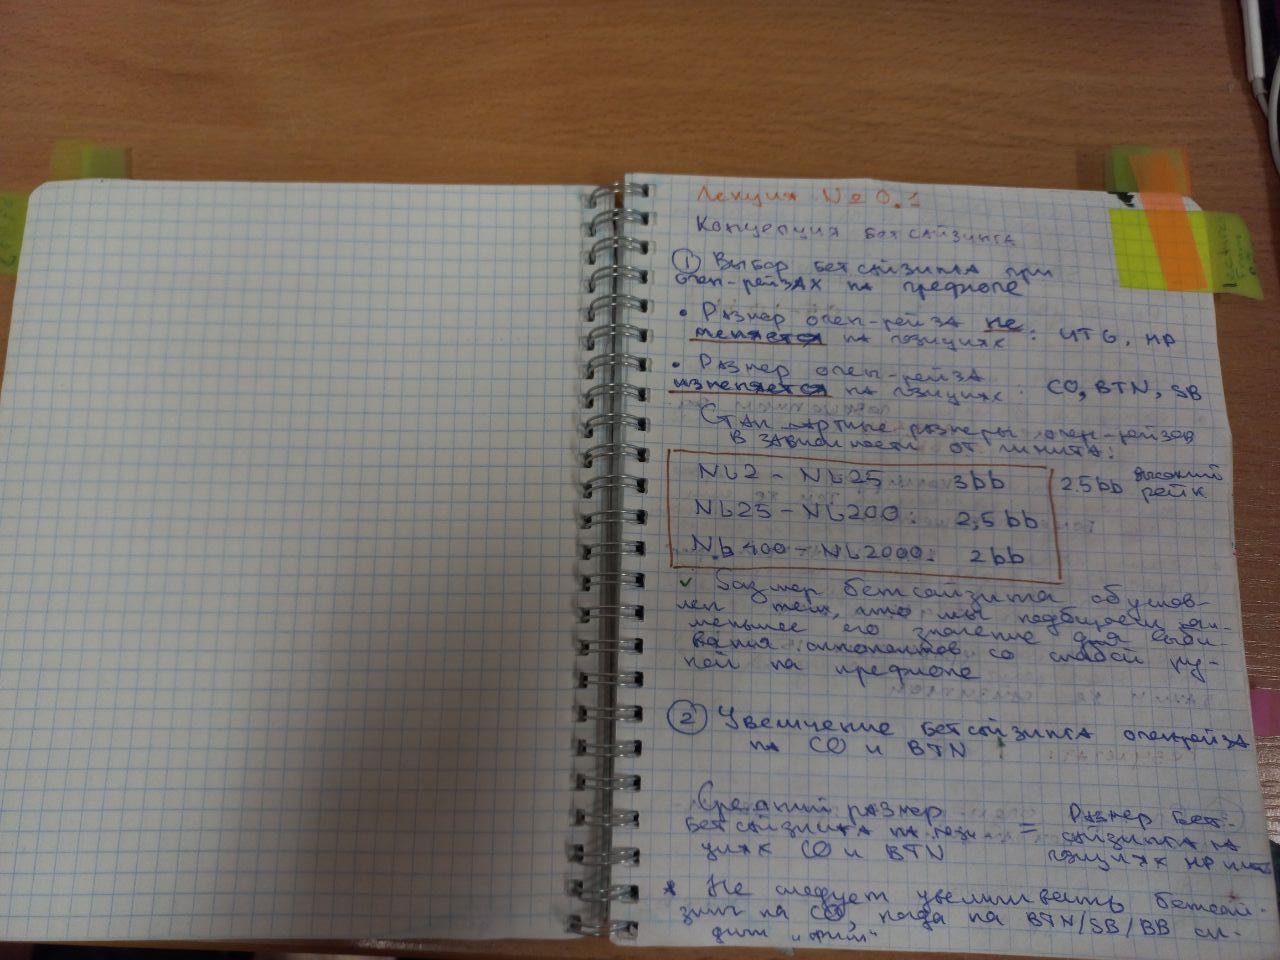 Лекция № 0.1
Концепция бетсайзинга
① Выбор бетсайзинга при
опен-рейзах на префлопе
• Размер опен-рейза не
меняется на позициях: UTG, MP
• Размер опен-рейза
изменяется на позициях: CO, BTN, SB
Стандартные размеры опен-рейзов
в зависимости от лимита:
NL2 - NL25 3bb 2.5bb высокий
рейк
NL25 - NL200: 2,5bb
NL400 - NL2000: 2bb
✓ Размер бетсайзинга обуслов-
лен тем, что мы подбираем
меньшее его значение для выби-
вания оппонентов со слабой ру-
кой на префлопе
② Увеличение бетсайзинга опенрейза
на CO и BTN
Средний размер = Размер бет-
бетсайзинга на пози- сайзинга на
циях CO и BTN позициях MP
* Не следует увеличивать бетсай-
зинг на CO, когда на BTN/SB/BB си-
дит